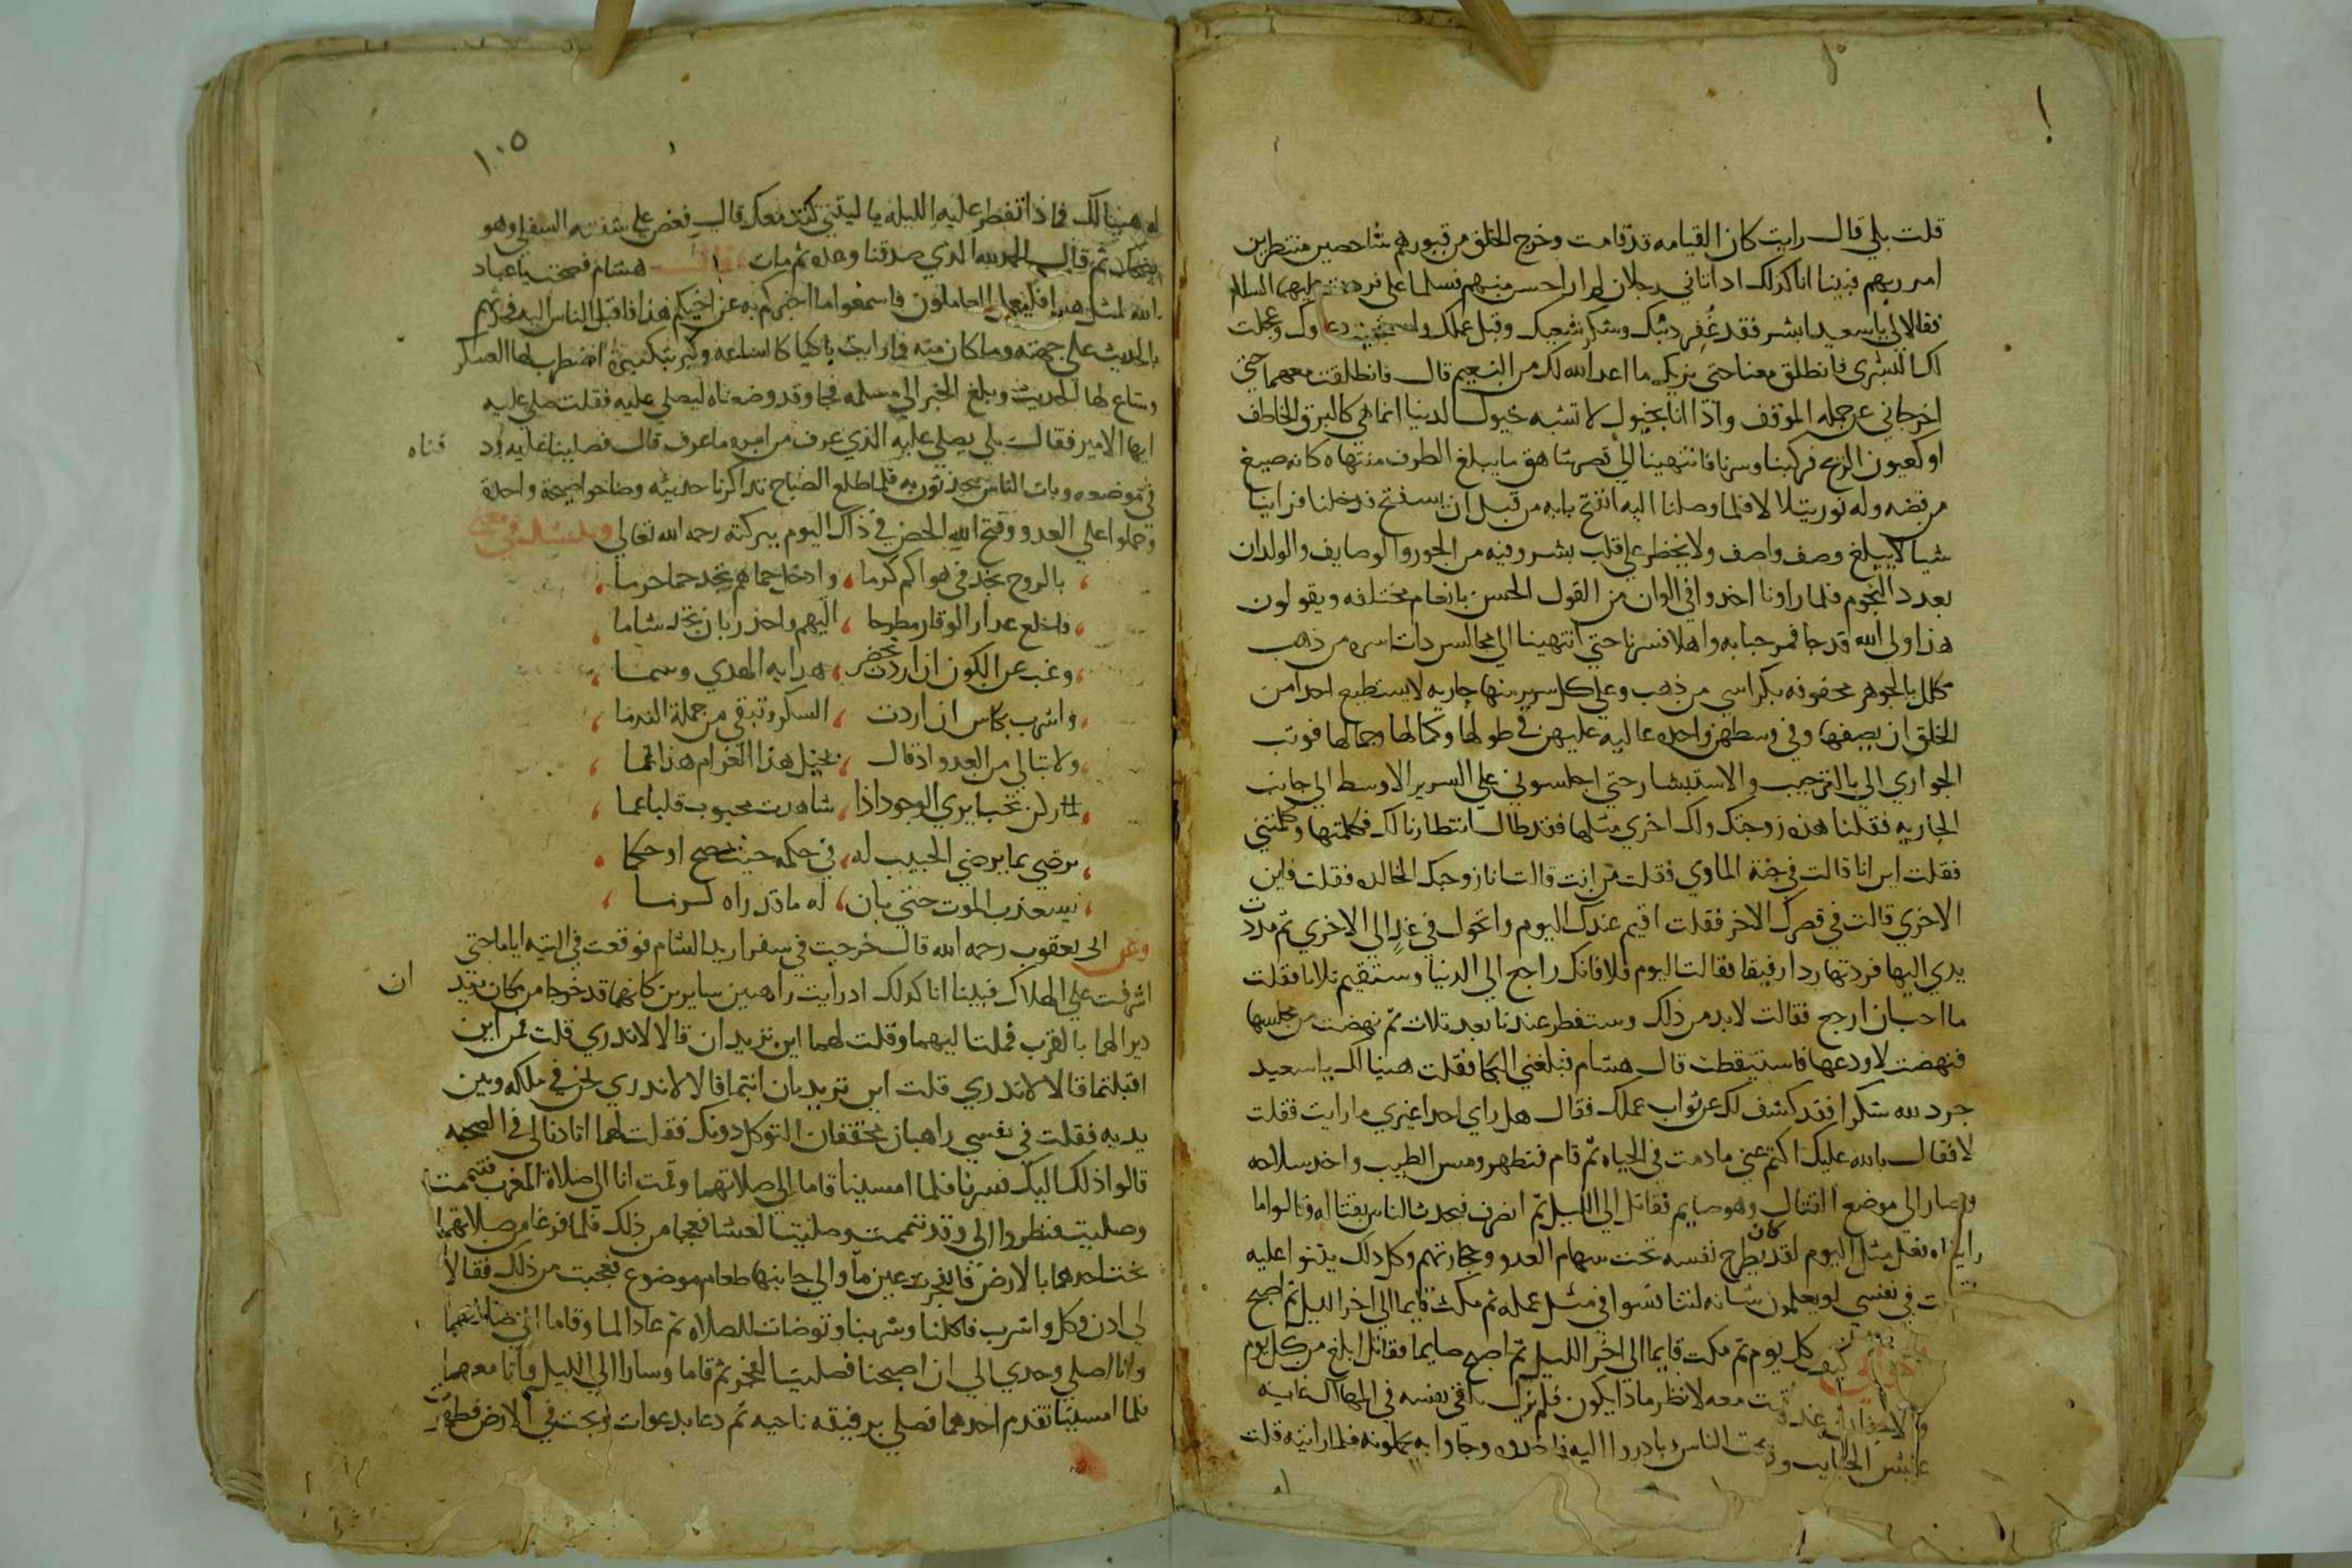 قلت بلي قال رايت كان القيامه قد قامت وخرج الخلق من قبورهم شاخصين منتظرين
امر ربهم فبينا انا كذلك اذ اتاني رجلان لم ار احسن منهم فسلما علي فرددت عليهما السلام
فقالا لي يا سعيد ابشر فقد غُفر ذنبك وشكر سعيك وقبل عملك دعاوك وعجلت
لك البشرى فانطلق معنا حتى نريك ما اعد الله لك من النعيم قال فانطلقت معهما حتى
اخرجاني عن جمله الموقف واذا انا بخيول لا تشبه خيول الدنيا انما هي كالبرق الخاطف
او كهبوب الريح فركبنا وسرنا فانتهينا الي قصر شاهق ما يبلغ الطرف منتهاه كانه صيغ
من فضه وله نور يتلالا فلما وصلنا اليه انفتح بابه من قبل ان يستفتح فدخلنا فراينا
شيا لا يبلغ وصف واصف ولا يخطر على قلب بشر وفيه من الحور والوصايف والولدان
بعدد النجوم فلما راونا اخدوا في الوان من القول الحسن بانغام مختلفه ويقولون
هذا ولي الله قد جا فمرحبا به واهلا فسرنا حتى انتهينا الي مجالس دات اسره من ذهب
مكلل بالجوهر محفوفه بكراسي من ذهب وعلي كل سرير منها جاريه لا يستطيع احدا من
الخلق ان يصفها وفي وسطهن واحده عاليه عليهن في طولها وكمالها وجمالها فوثب
الجواري الي بالترحيب والاستبشار حتى اجلسوني على السرير الاوسط الي جانب
الجاريه فقلنا هذه زوجتك ولك اخري مثلها فقد طال انتظارنا لك فكلمتها وكلمتني
فقلت اين انا قالت في جنة الماوي فقلت من انت قالت انا زوجتك الخالده فقلت فاين
الاخري قالت في قصرك الاخر فقلت اقيم عندك اليوم واتحول في غدٍ الي الاخري ثم مددت
يدي اليها فردتها ردا رفيقا فقالت اليوم فلا فانك راجع الي الدنيا وستقيم ثلاثا فقلت
ما احب ان ارجع فقالت لا بد من ذلك وستفطر عندنا بعد ثلاث ثم نهضت من مجلسها
فنهضت لاودعها فاستيقظت قال هشام فبلغني البكا فقلت هنيا لك يا سعيد
جرد لله شكرا فقد كشف لك عن ثواب عملك فقال هل راي احدا غيري ما رايت فقلت
لا فقال بالله عليك اكتم عني ما دمت في الحياه ثم قام فتطهر ومس الطيب واخد سلاحه
وصار الي موضع القتال وهو صايم فقاتل الي الليل ثم انصرف فتحدث الناس بقتاله وقالوا ما
راينا فعل مثل اليوم لقد كان يطرح نفسه تحت سهام العدو وحجارتهم وكل ذلك ينبوا عليه
في نفسي لو يعلمون شانه لتنافسوا في مثل عمله ثم مكث قايما الي اخر الليل ثم اصبح
كل يوم ثم مكث قايما الي اخر الليل ثم اصبح صايما فقاتل ابلغ من كل يوم
معه لانظر ماذا يكون فلم يزل يلقي نفسه في المهالك
الناس وبادروا اليه فاخدوه وجاوا به يحملونه فلما رايته قلت
١٠٥
له هنيا لك فاذا تفطر عليه الليله يا ليتني كنت معك قال فعض على شفته السفلي وهو
يضحك ثم قال الحمد لله الذي صدقنا وعده ثم مات قال هشام فصحت يا عباد
الله لمثل هدا فليعمل العاملون فاسمعوا ما اخبركم به عن اخيكم هذا فاقبل الناس اليه فحدثتهم
بالحديث على جهته وما كان منه فما رايت باكيا كالساعه وكبر تكبيرة اضطرب لها العسكر
وشاع لها الحديث وبلغ الخبر الي مسلمه فجا وقد وضعناه ليصلي عليه فقلت صلي عليه
ايها الامير فقال بلي يصلي عليه الذي عرف من امره ما عرف قال فصلينا عليه ود فناه
في موضعه وبات الناس يحدثون به فلما طلع الصباح تداكرنا حديثه وصاحوا صيحة واحدة
وحملوا على العدو وفتح الله الحصن في ذاك اليوم ببركته رحمه الله تعالي وينشد في معنى
بالروح نجد في هواكم كرما وادخل حماهم تجد حما حرما
واخلع عدار الوقار مطرحا اليهم واحذر بان تخد شاما
وغب عن الكون ان اردت تحضر هدايه الهدي وسما
واشرب بكاس ان اردت السكر وتبقى من جملة الندما
ولا تبالي من العدو اذ قال بخيل هذا الغرام هذا عما
لم ار لمن تحب يري الوجود اذا شاهدت محبوب قلبا عما
يرضي بما يرضي الحبيب له في حكمه حيث صح او حكما
يستعذب الموت حتى بان له ما قد راه
وعن ابي يعقوب رحمه الله قال خرجت في سفر اريد الشام فوقعت في التيه اياما حتى
اشرفت على الهلاك فبينا انا كدلك اد رايت راهبين سايرين كانهما قد خرجا من مكان يريد ان
ديرا لهما بالقرب فملت اليهما وقلت لهما اين تريد ان قالا لا ندري قلت فمن اين
اقبلتما قالا لا ندري قلت اين تريدان انتما قالا لا ندري نحن في ملكه وبين
يديه فقلت في نفسي راهبان يحققان التوكل دونك فقلت لهما اتادنا لي في الصحبه
قالوا ذلك اليك فسرنا فلما امسينا قاما الي صلاتهما وقمت انا الي صلاة المغرب فتيممت
وصليت فنظروا الي وقد تيممت وصليت العشا فعجبا من ذلك فلما فرغا من صلاتهما
بحث احدهما بالارض فانفجرت عين ما والي جانبها طعام موضوع فعجبت من ذلك فقالا
لي ادن وكل واشرب فاكلنا وشربنا وتوضات للصلاه ثم عاد الما وقاما الي صلاتهما
وانا اصلي وحدي الي ان اصبحنا فصليت الفجر ثم قاما وسارا الي الليل وانا معهما
فلما امسينا تقدم احدهما فصلي برفيقه ناحيه ثم دعا بدعوات وبحث في الارض فظهرت